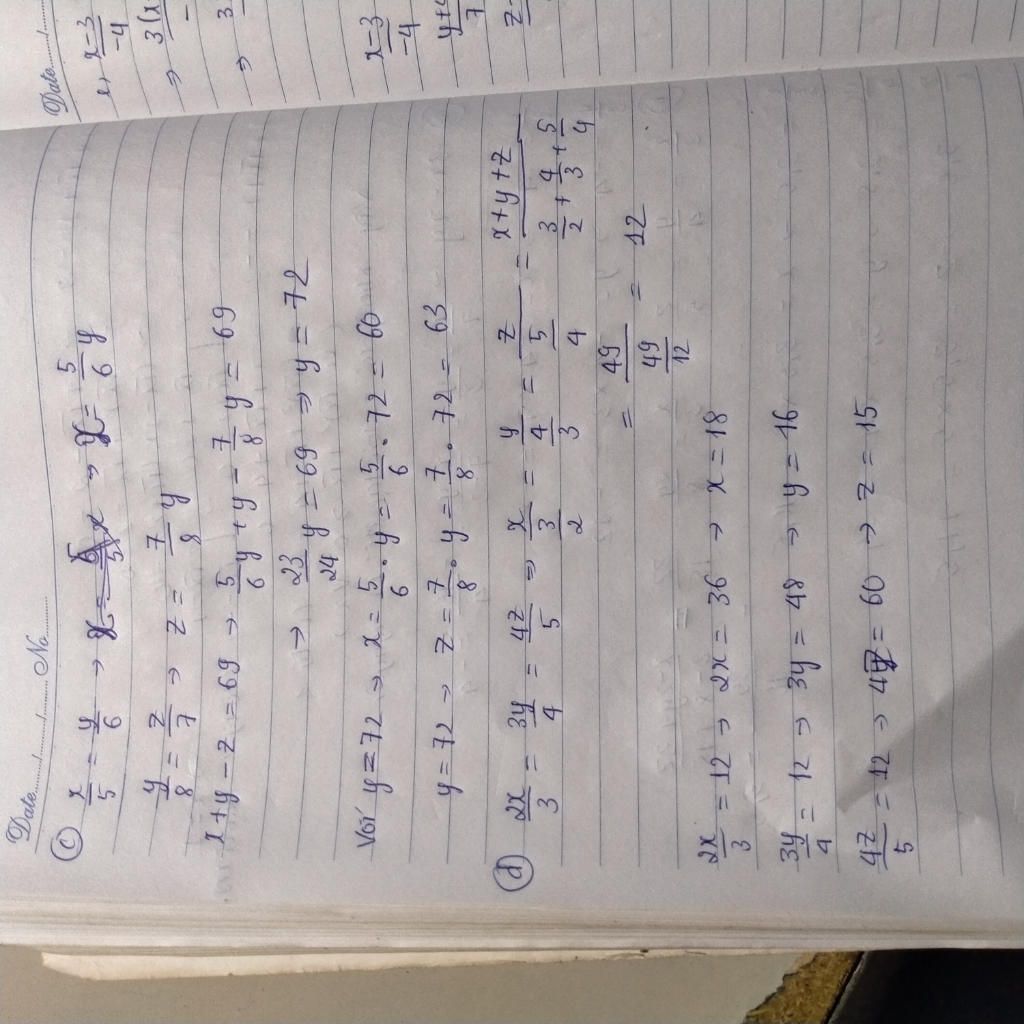 Date....../....../......No..........
c) x/5 = y/6 → x = 5/6 y
y/8 = z/7 → z = 7/8 y
x+y-z = 69 → 5/6 y + y - 7/8 y = 69
→ 23/24 y = 69 → y = 72
Với y = 72 → x = 5/6 . y = 5/6 . 72 = 60
y = 72 → z = 7/8 . y = 7/8 . 72 = 63
d) 2x/3 = 3y/4 = 4z/5 → x/(3/2) = y/(4/3) = z/(5/4) = (x+y+z)/(3/2 + 4/3 + 5/4)
= 49/(49/12) = 12
2x/3 = 12 → 2x = 36 → x = 18
3y/4 = 12 → 3y = 48 → y = 16
4z/5 = 12 → 4z = 60 → z = 15
Date....../
e, (x-3)/-4
→ 3(x
→ 3
(x-3)/-4